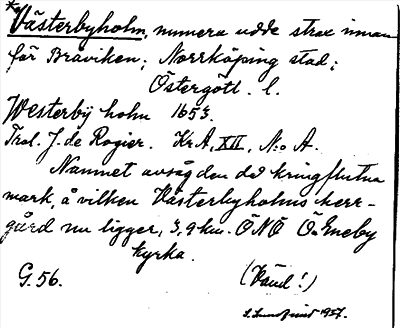 *Västerbyholm, numera udde strax innan-
för Bråviken; Norrköping stad;
Östergötl. l.
Westerbÿ holm 1653.
Trol. J. de Rogier. Kr A, XII, N:o A.
Namnet avsåg den då kringflutna
mark, å vilken Västerbyholms herr-
gård nu ligger, 3,9 km. ÖNÖ Ö. Eneby
kyrka.
G. 56. (Vänd!)
S. Lundqvist 1957.